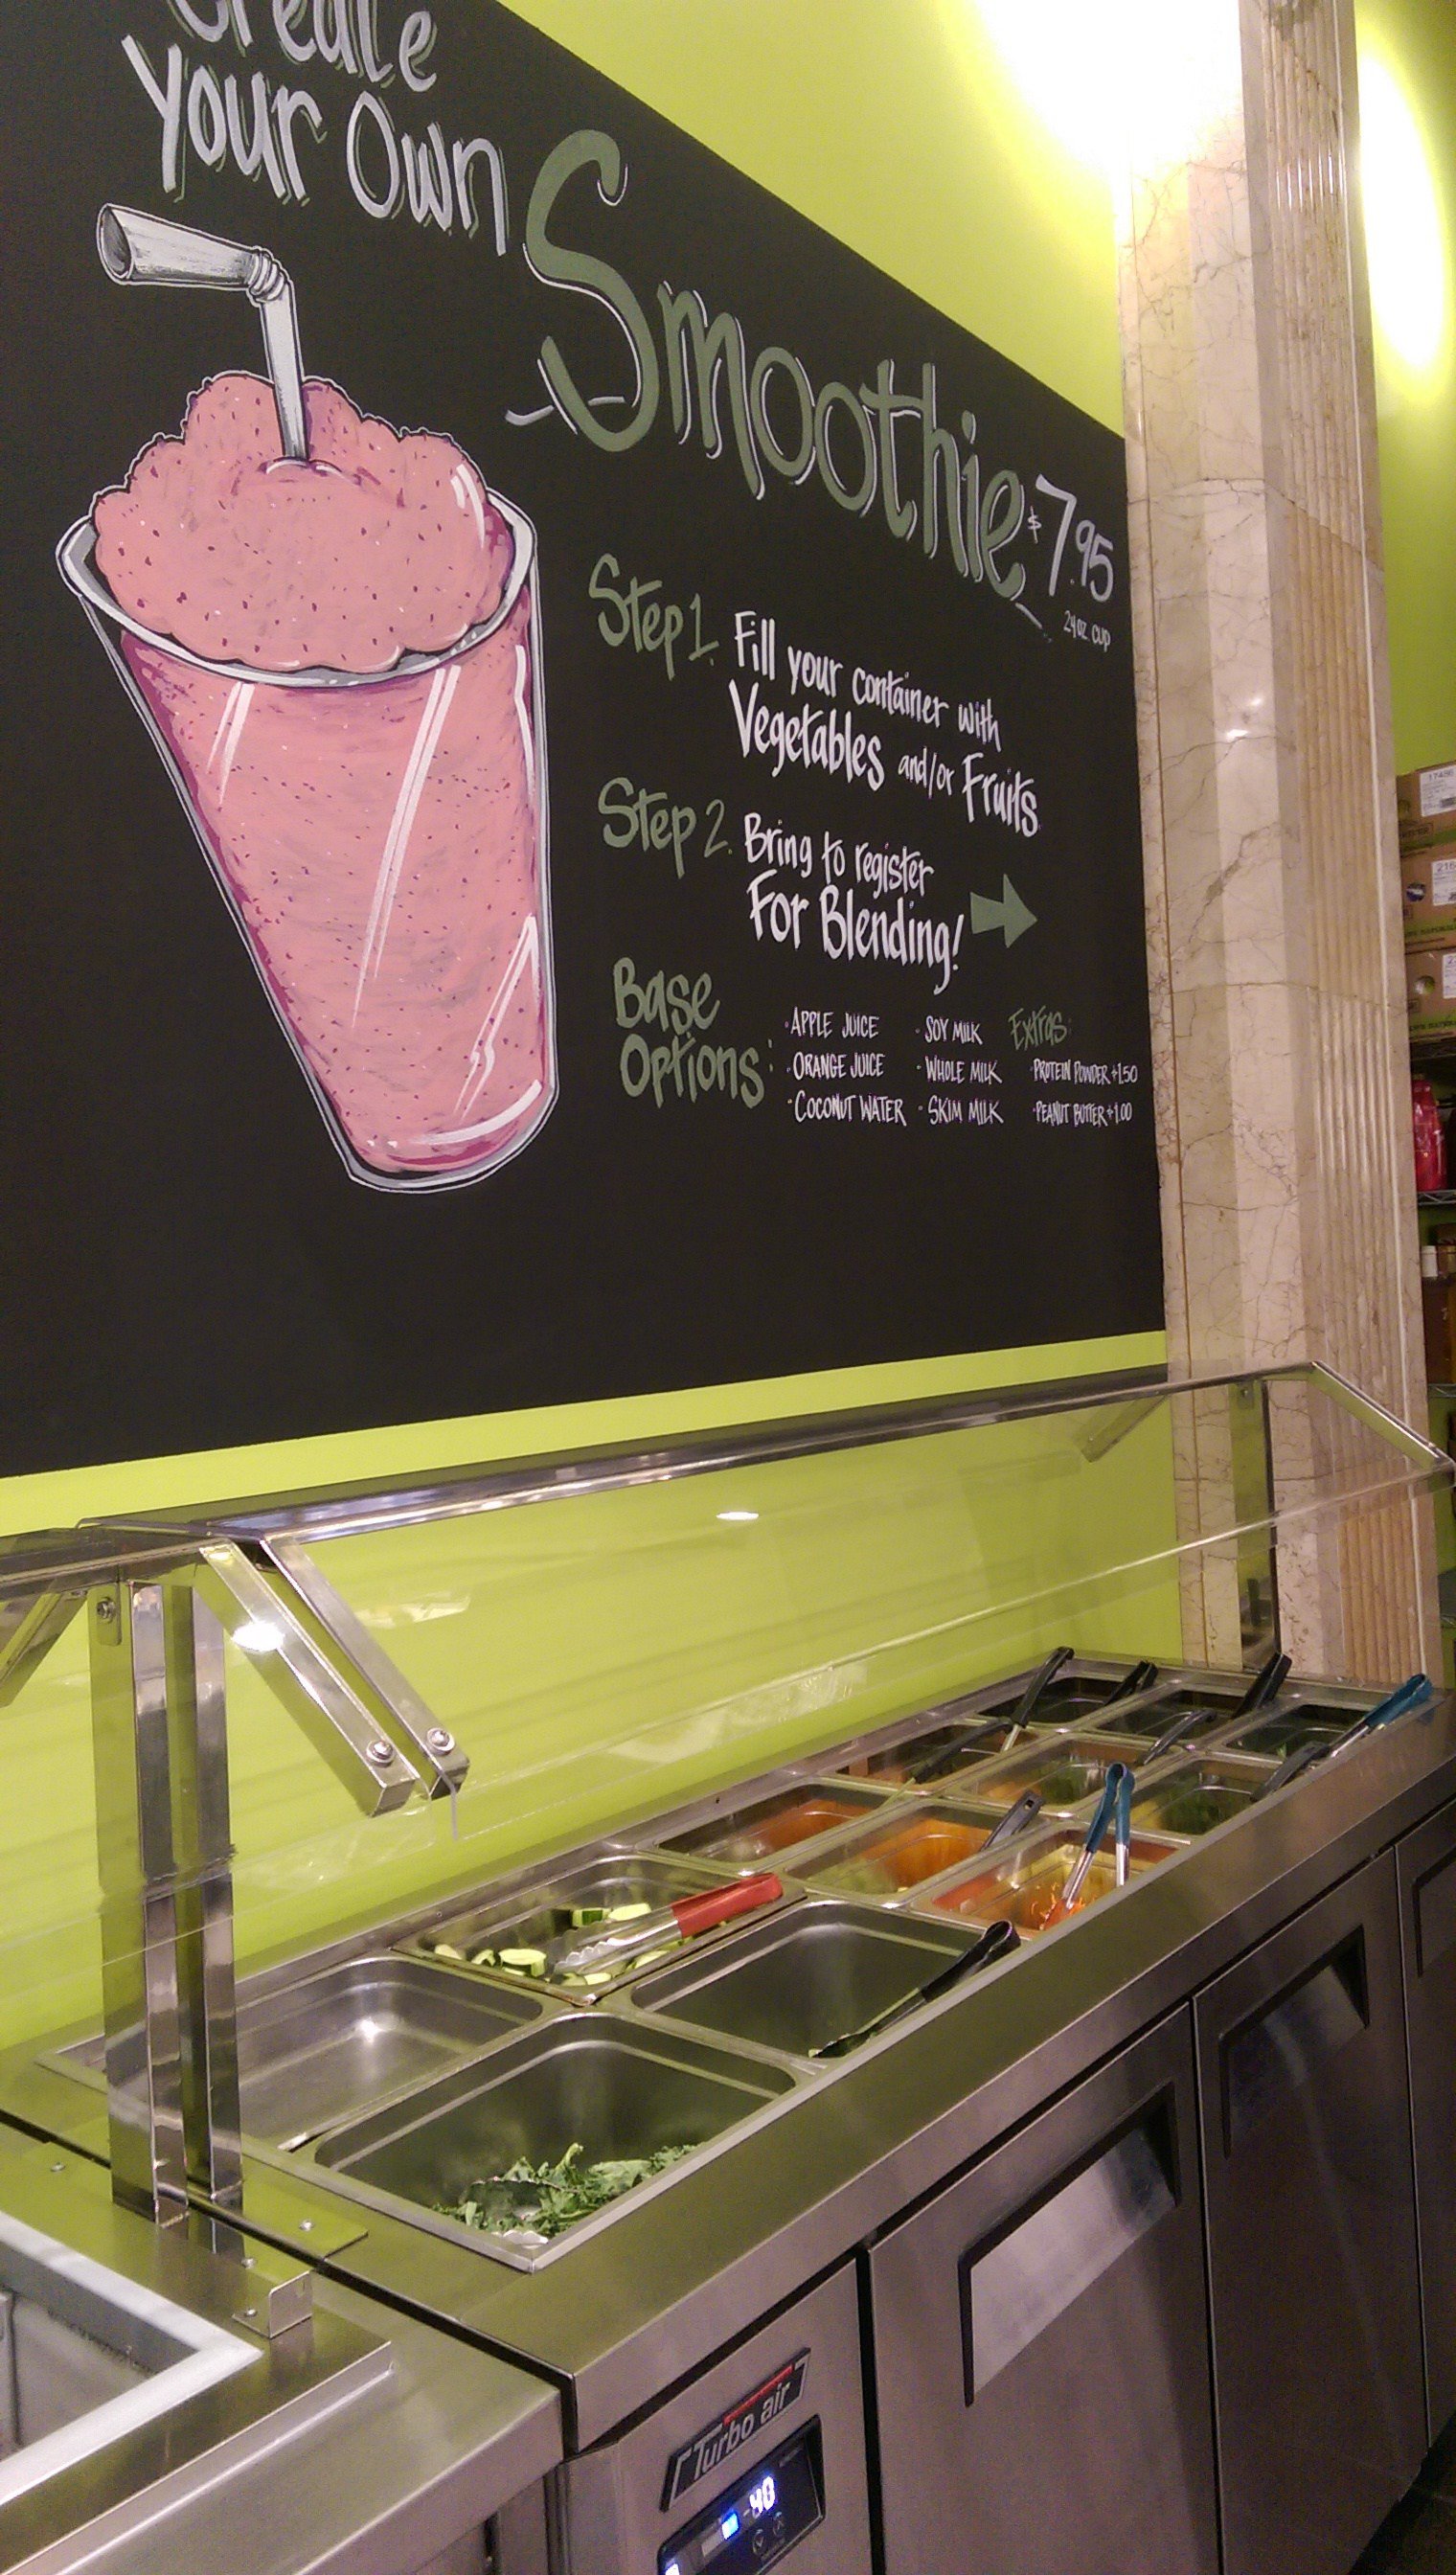 Create
Your Own
Smoothie
$7.95
24 oz. CUP
Step 1.
Fill your container with
Vegetables and/or Fruits
Step 2.
Bring to register
For Blending!
Base
Options:
·APPLE JUICE
·ORANGE JUICE
·COCONUT WATER
·SOY MILK
·WHOLE MILK
·SKIM MILK
Extras:
·PROTEIN POWDER +1.50
·PEANUT BUTTER +1.00
Turbo air
40